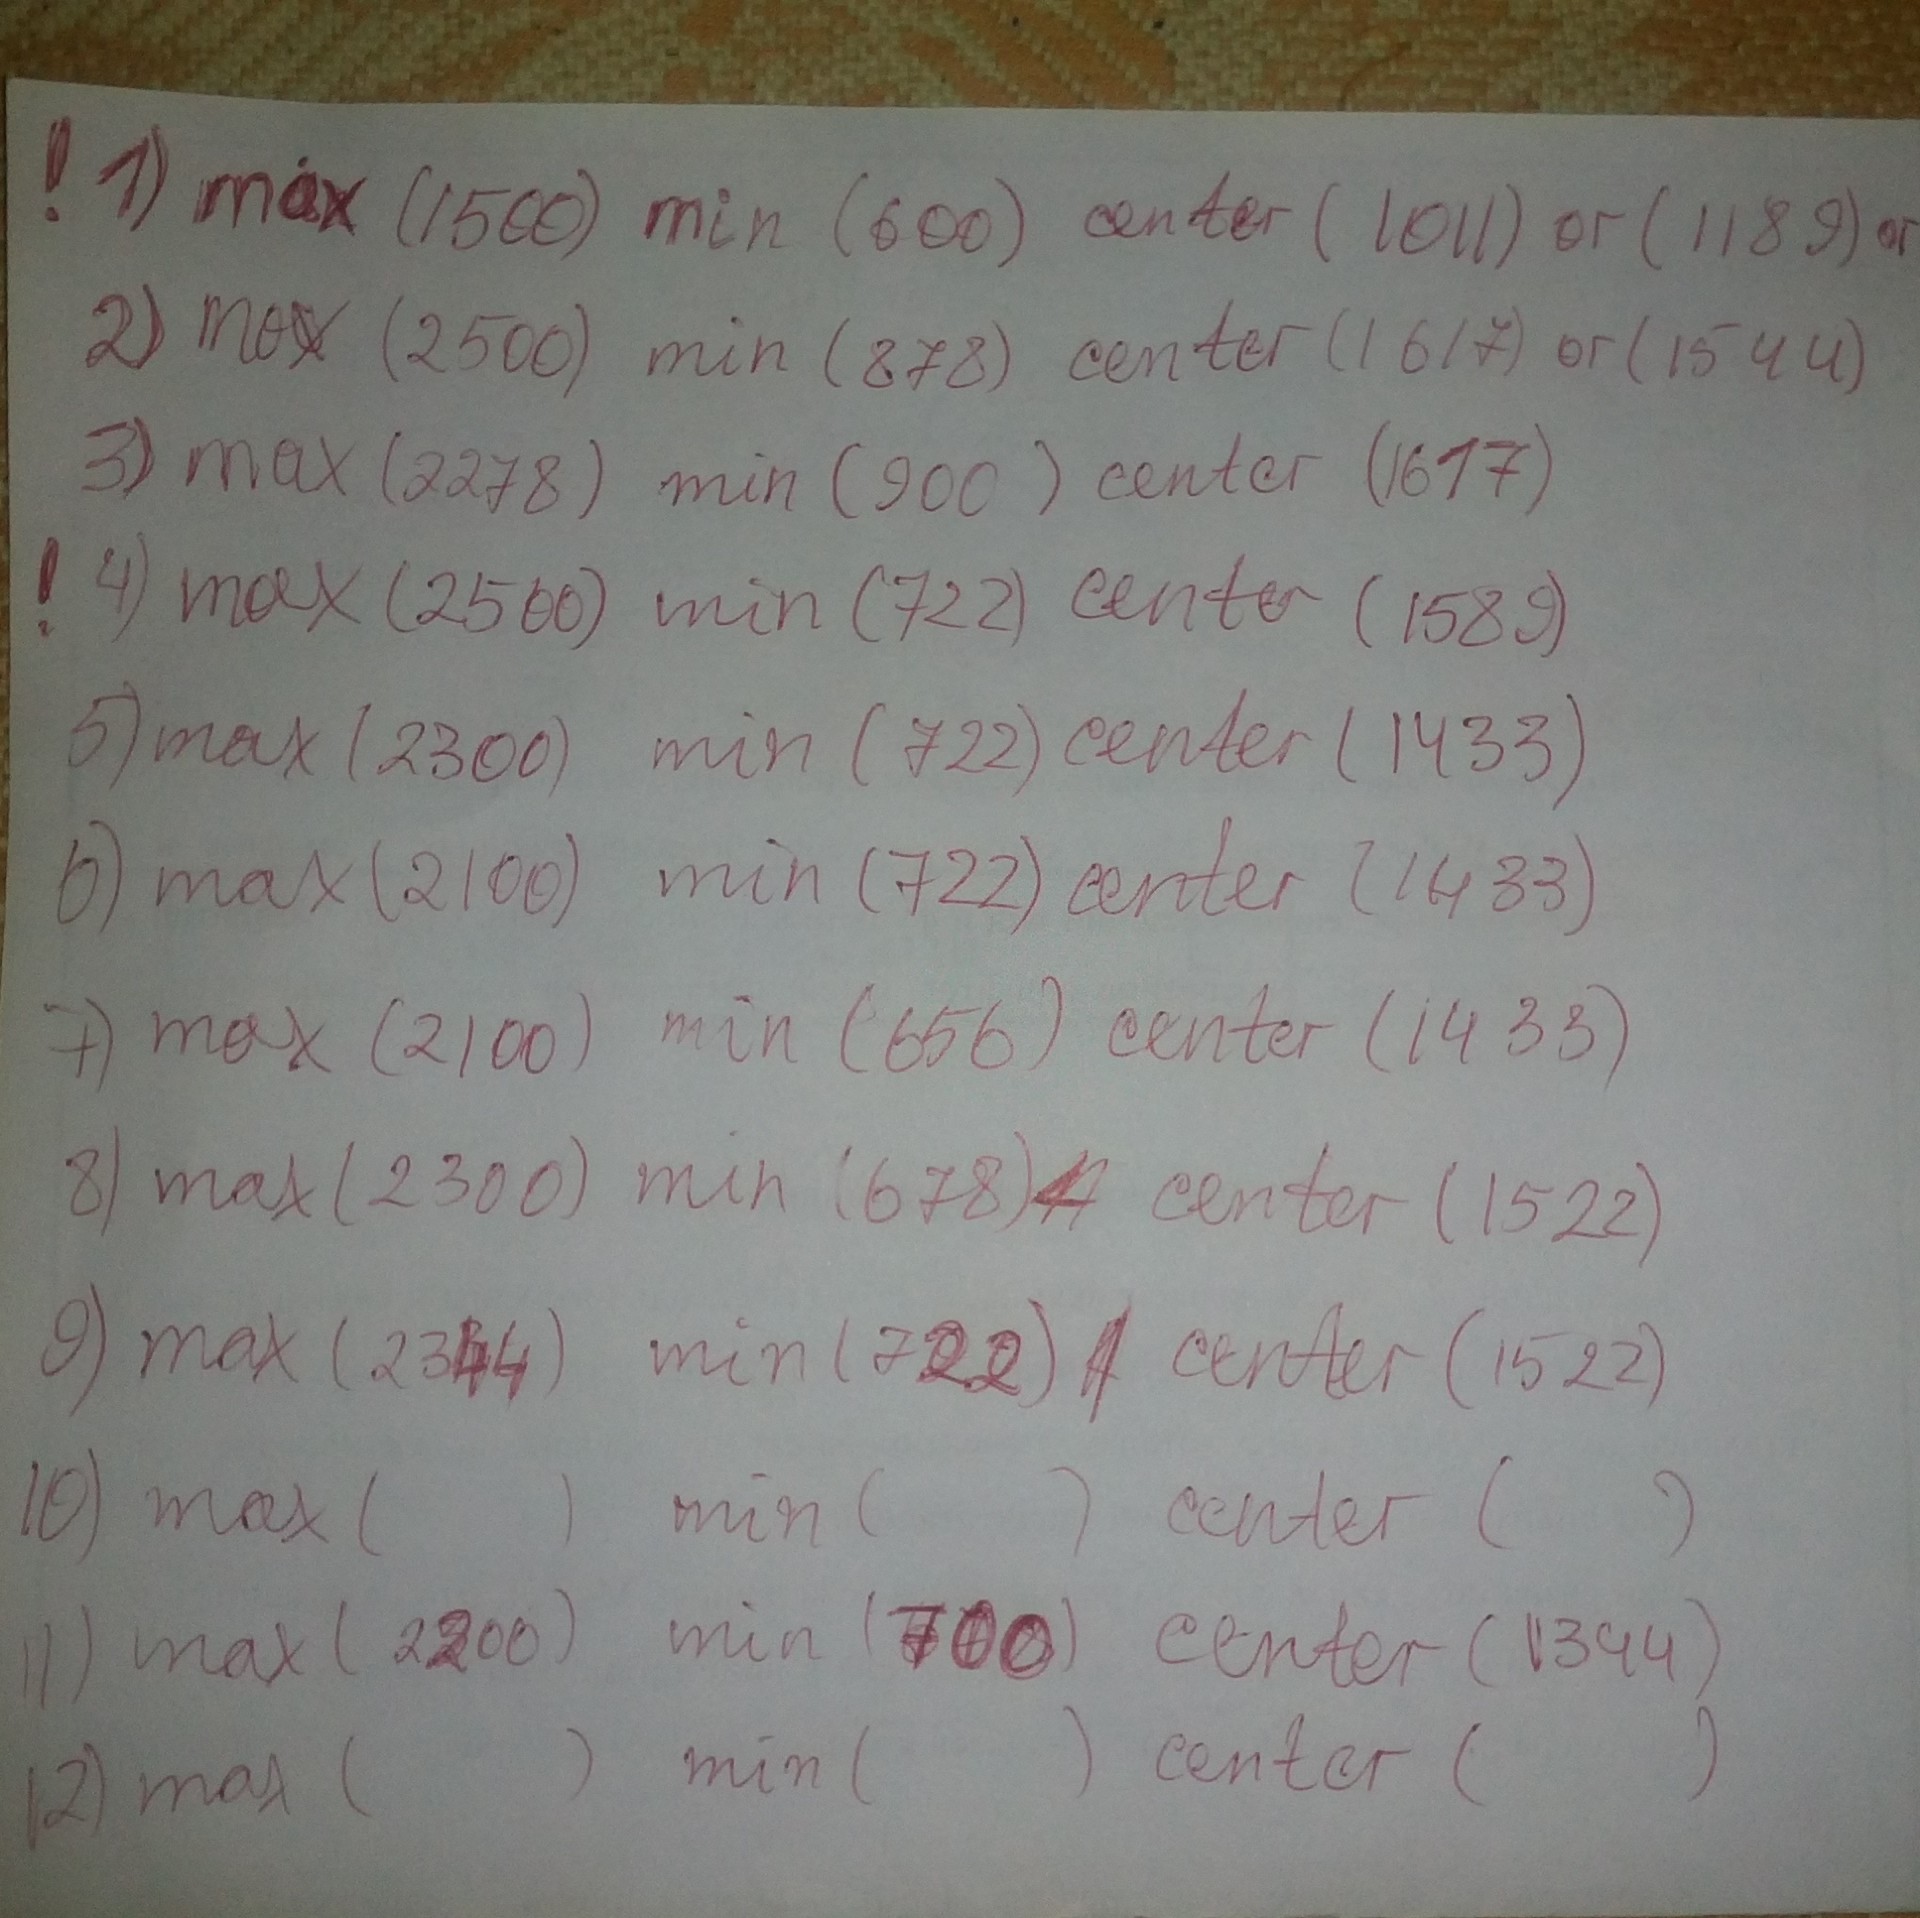 ! 1) max (1500) min (600) center (1011) or (1189) or
2) max (2500) min (878) center (1617) or (1544)
3) max (2278) min (900) center (1617)
! 4) max (2500) min (722) center (1589)
5) max (2300) min (722) center (1433)
6) max (2100) min (722) center (1433)
7) max (2100) min (656) center (1433)
8) max (2300) min (678) center (1522)
9) max (2344) min (722) center (1522)
10) max ( ) min ( ) center ( )
11) max (2200) min (700) center (1344)
12) max ( ) min ( ) center ( )